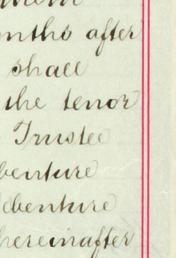 onths after
shall
the tenor
Trustee
benture
Debenture
hereinafter